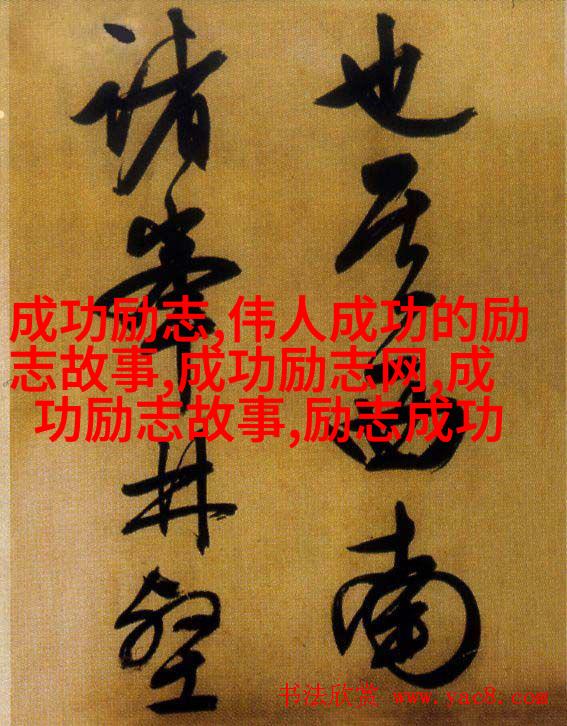 也其西南
諸峯林壑
成功励志,伟人成功的励
志故事,成功励志网,成
功励志故事,励志成功
书法欣赏 www.yac8.com